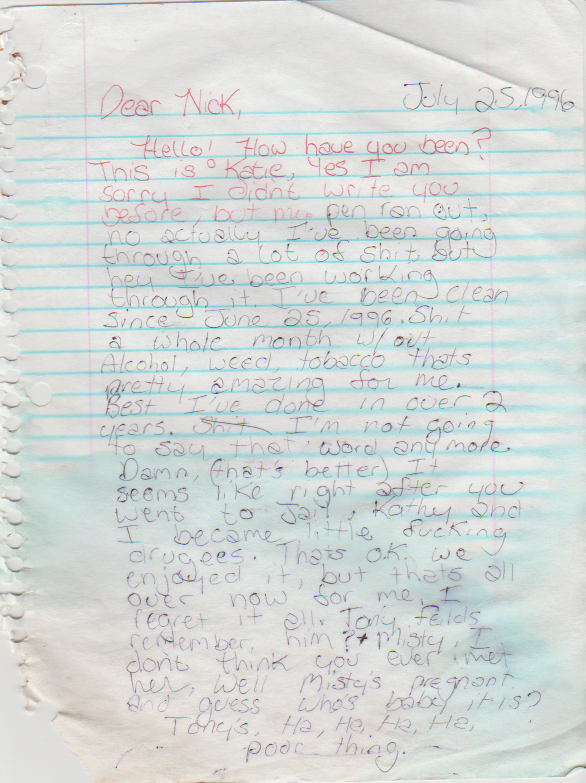 July 25, 1996
Dear Nick,
Hello! How have you been?
This is Katie, Yes I am
sorry I didnt write you
before, but my pen ran out,
no actually I've been going
through a lot of shit, but
hey I've been working
through it. I've been clean
since June 25, 1996. Shit
a whole month w/out
Alcohol, weed, tobacco thats
pretty amazing for me.
Best I've done in over 2
years. Shit I'm not going
to say that word anymore.
Damn, (that's better) It
seems like right after you
went to Jail, Kathy and
I became little fucking
drugees. Thats o.k. we
enjoyed it, but thats all
over now for me, I
regret it all. Tony Feilds
remember him? + Misty, I
dont think you ever met
her, well Misty's pregnant
and guess who's baby it is?
Tony's, Ha, Ha, Ha, Ha,
poor thing.